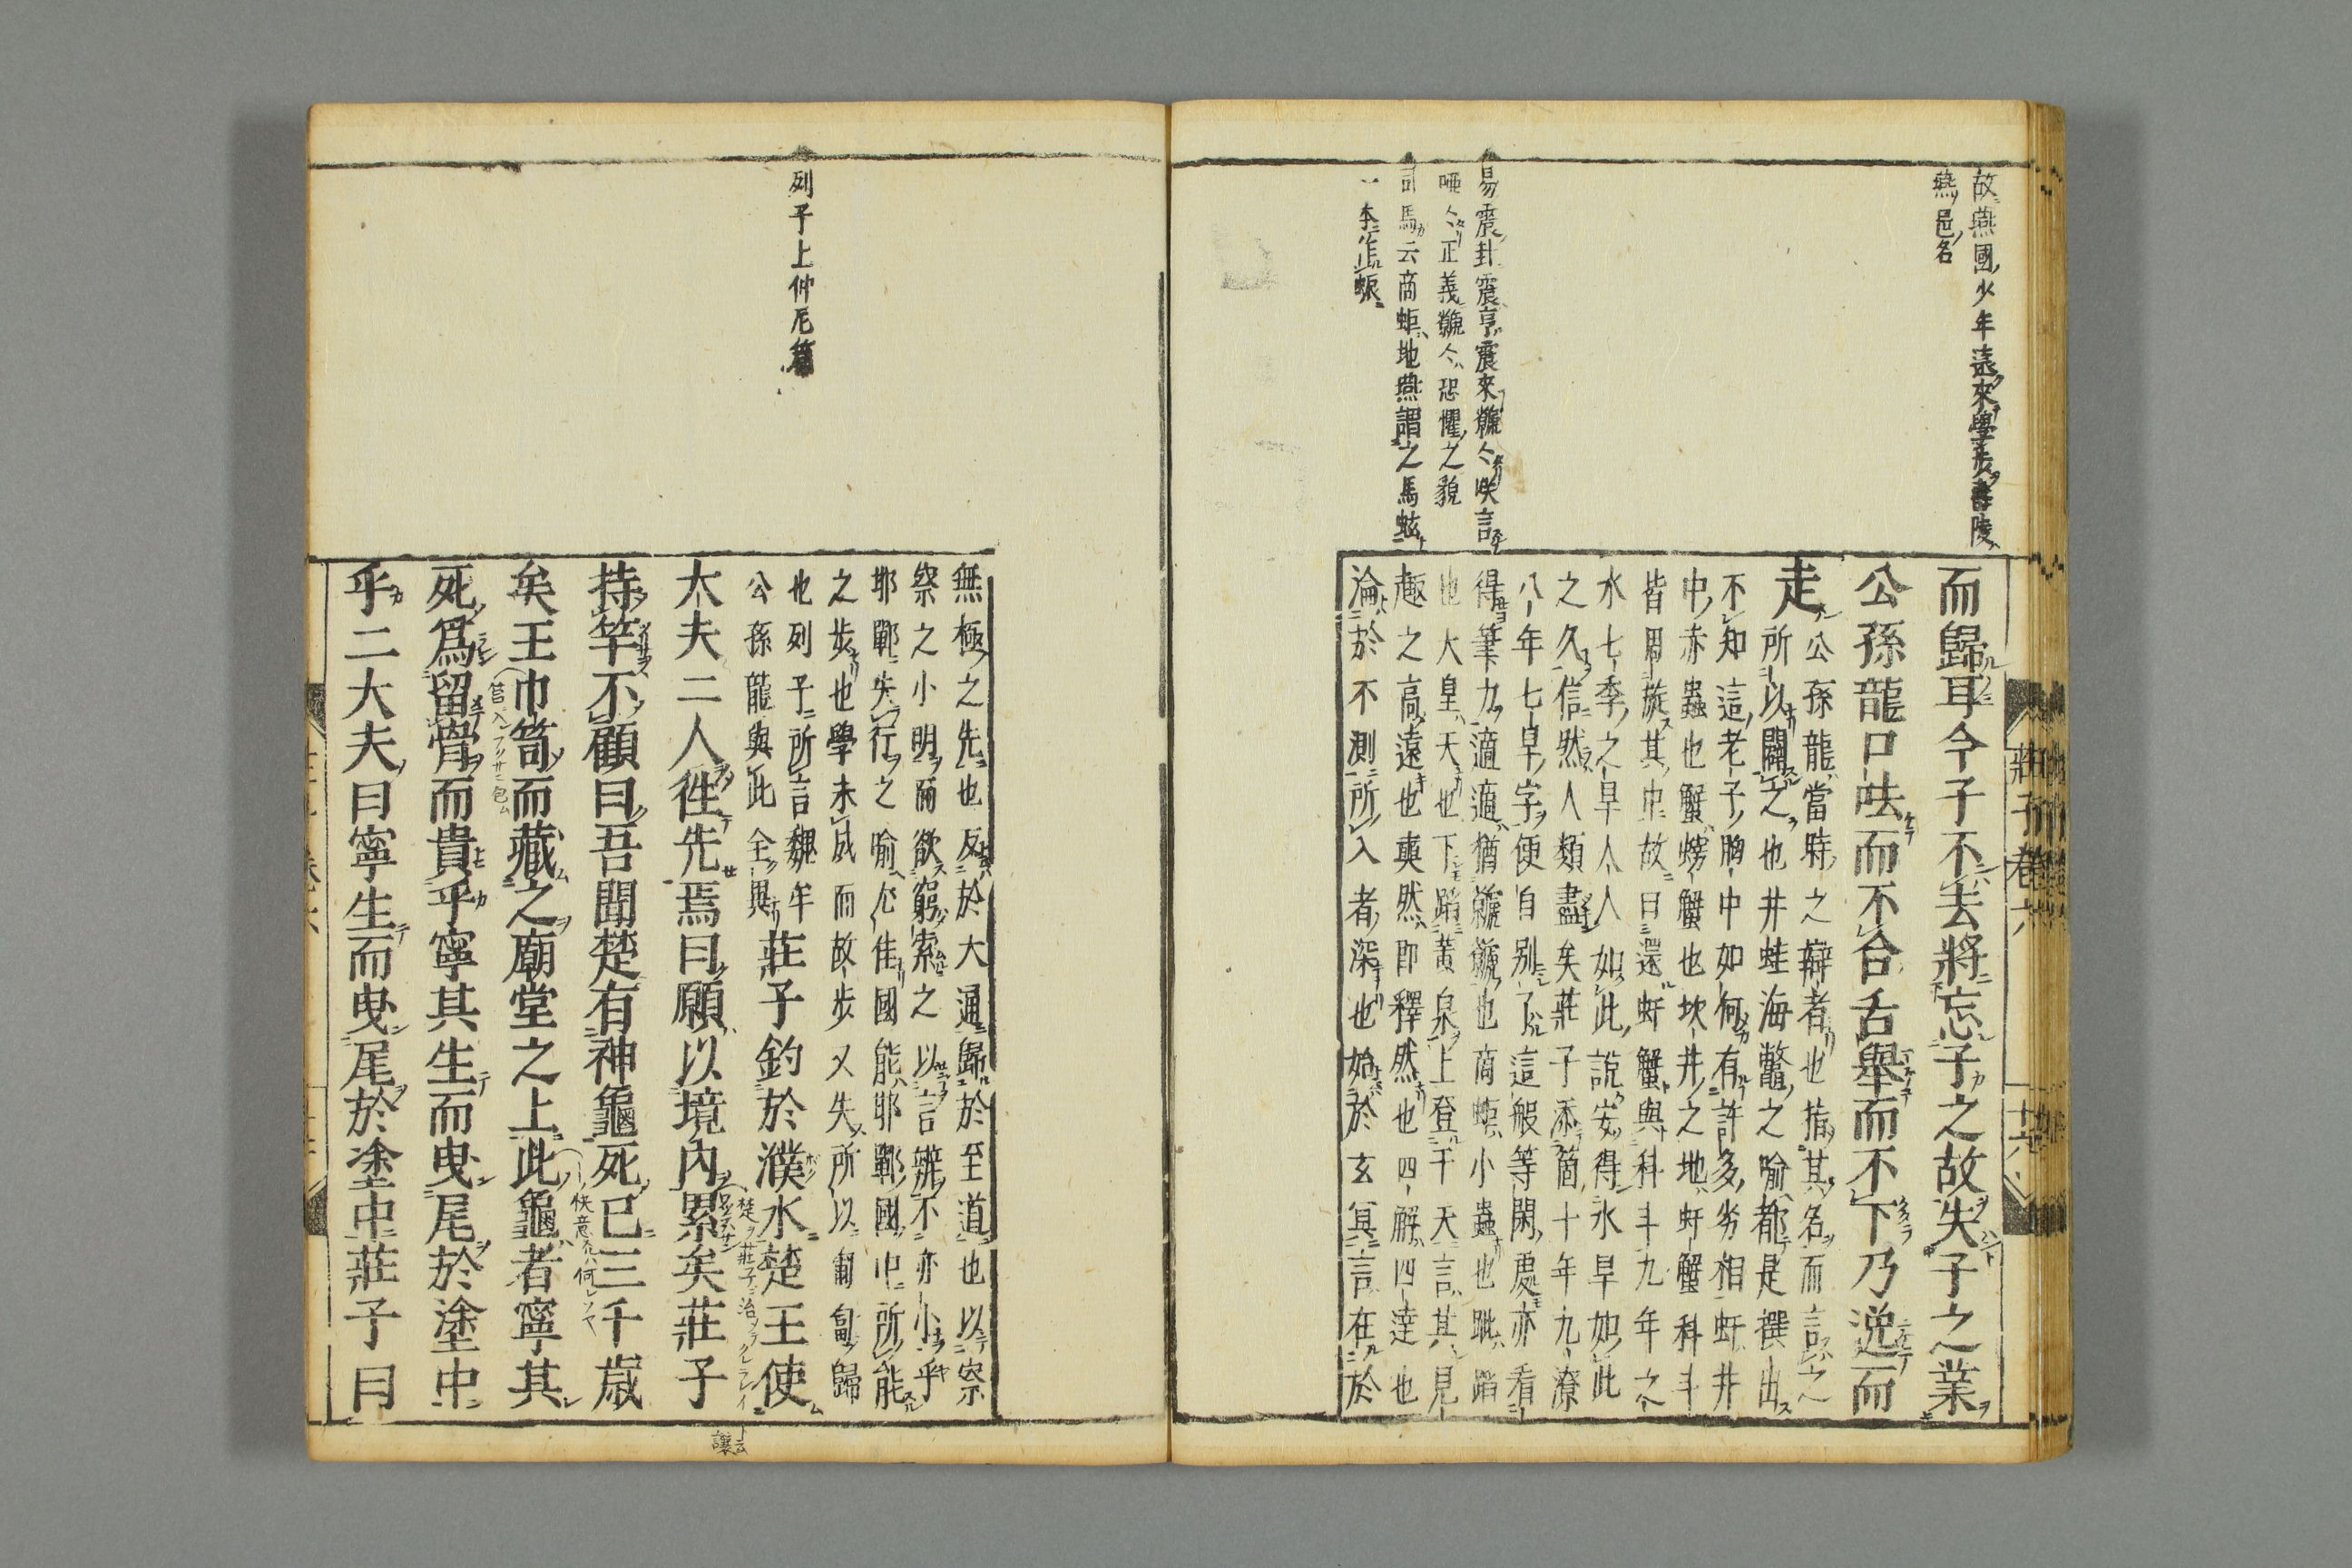 故燕國少年遠來學
陵燕邑名
易震卦震亨震來虩〻咲言
唖〻正義虩〻恐懼之貌
司馬云商蚷地燕謂之馬蚿
一本作蚿
而歸耳今子不去將忘子之故失子之業
公孫龍口呿而不合舌舉而不下乃逸而
走
公孫龍當時之辯者也指其名而言之
所以闢之也井蛙海鼈之喻都是撰出
不知這老子胸中如何有許多劣相虷井
中赤蟲也蟹螃蟹也坎井之地虷蟹科斗
皆周旋其中故曰還虷蟹與科斗九年之
水七季之旱人人如此說安得水旱如此
之久信然人類盡矣莊子添箇十年九潦
八年七旱字便自別了這般等閑處亦看
得筆力適適猶虩虩也商蚷小蟲也跐蹈
也大皇天也下蹈黃泉上登于天言其見
趣之高遠也奭然即釋然也四解四達也
淪於不測所入者深也始於玄冥言在於
莊子卷六
十六
列子上仲尼篇
無極之先也反於大通歸於至道也以察
察之小明而欲窮索之以言辨不亦小乎
邯鄲失行之喻尤佳國能邯鄲國中所能
之步也學未成而故步又失所以匍匐歸
也列子所言魏牟
公孫龍與此全異
莊子釣於濮水楚王使
大夫二人徃先焉曰願以境內累矣莊子
持竿不顧曰吾聞楚有神龜死已三千歲
矣王巾笥而藏之廟堂之上此龜者寧其
死爲留骨而貴乎寧其生而曳尾於塗中
乎二大夫曰寧生而曳尾於塗中莊子曰